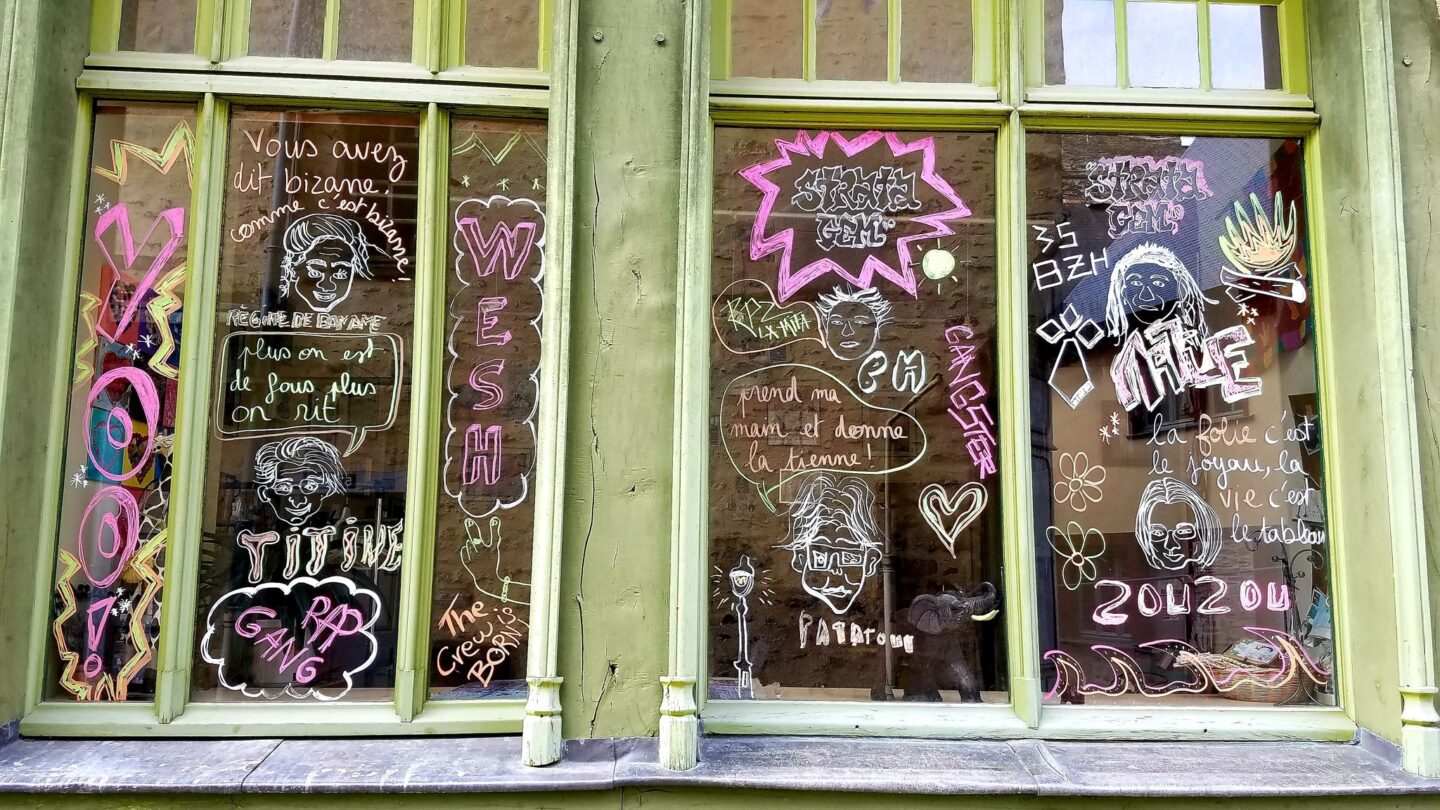 YOOO!
Vous avez
dit bizane.
comme c'est bizane!
RÉGIME DE BANANE
plus on est
de fous plus
on rit
TITINE
RAP
GANG
WESH
The
Crew is
BORN
STRATA
GEM
BPZ
LA MIFA
PH
GANGSTER
prend ma
main et donne
la tienne !
STRATA
GEM
35
BZH
la folie c'est
le joyau, la
vie c'est
le tableau
ZOUZOU